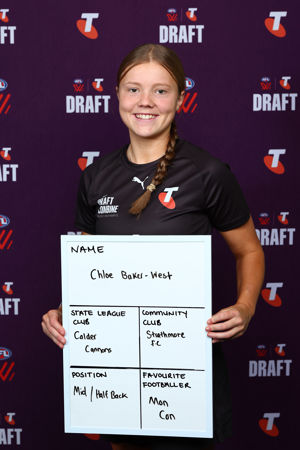 DRAFT
DRAFT
DRAFT
DRAFT
DRAFT
DRAFT
DRAFT
DRAFT
DRAFT COMBINE
NAME
Chloe Baker-West
STATE LEAGUE
CLUB
Calder
Cannons
COMMUNITY
CLUB
Strathmore
F.C
POSITION
Mid / Half Back
FAVOURITE
FOOTBALLER
Mon
Con